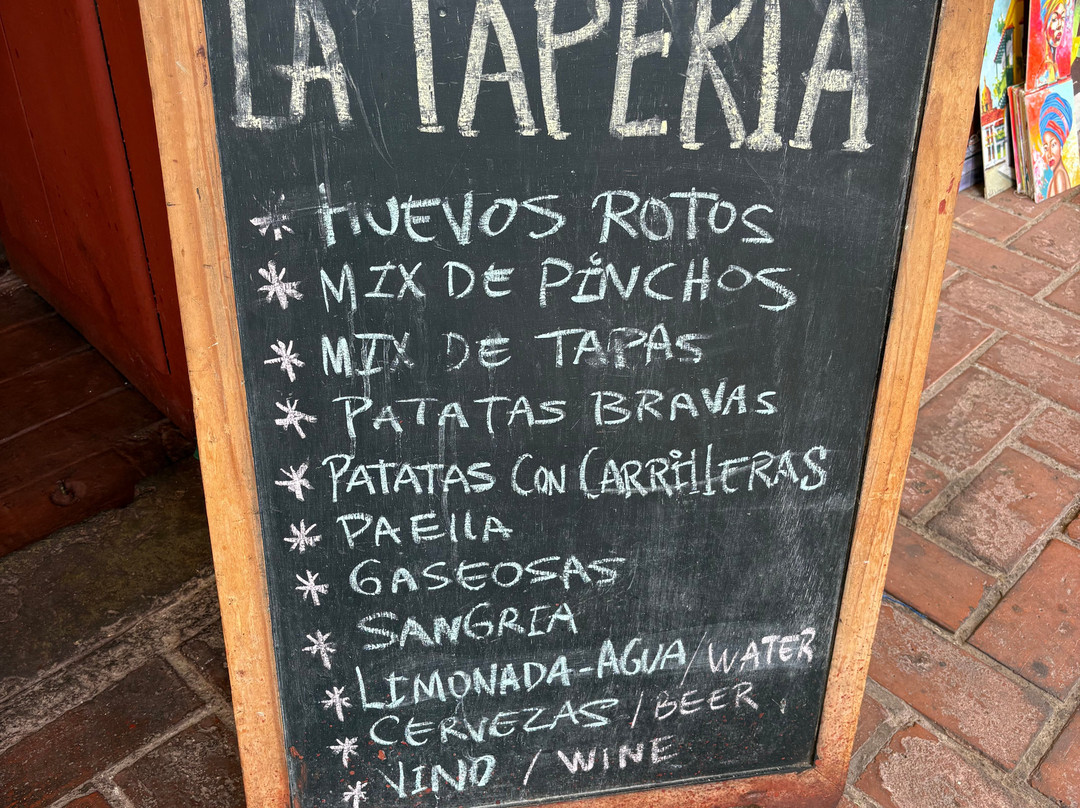 LA TAPERIA
* HUEVOS ROTOS
* MIX DE PINCHOS
* MIX DE TAPAS
* PATATAS BRAVAS
* PATATAS CON CARRILLERAS
* PAELLA
* GASEOSAS
* SANGRIA
* LIMONADA-AGUA/WATER
* CERVEZAS/BEER
* VINO/WINE